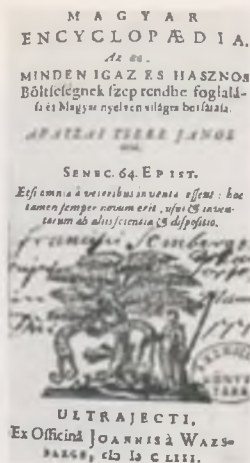 MAGYAR
ENCYCLOPÆDIA.
Az az
MINDEN IGAZ ES HASZNOS
Böltseségnek szep rendbe foglalá-
sa és Magyar nyelven világra botsátása.
APATZAI TSERE JANOS
SENEC. 64. EPIST.
Etsi omnia à veteribus inventa essent: hoc
tamen semper novum erit, usus & inven-
torum ab aliis scientia & dispositio.
ULTRAJECTI,
Ex Officinâ JOANNIS à WAES-
BERGE, cIɔ Iɔ CLIII.